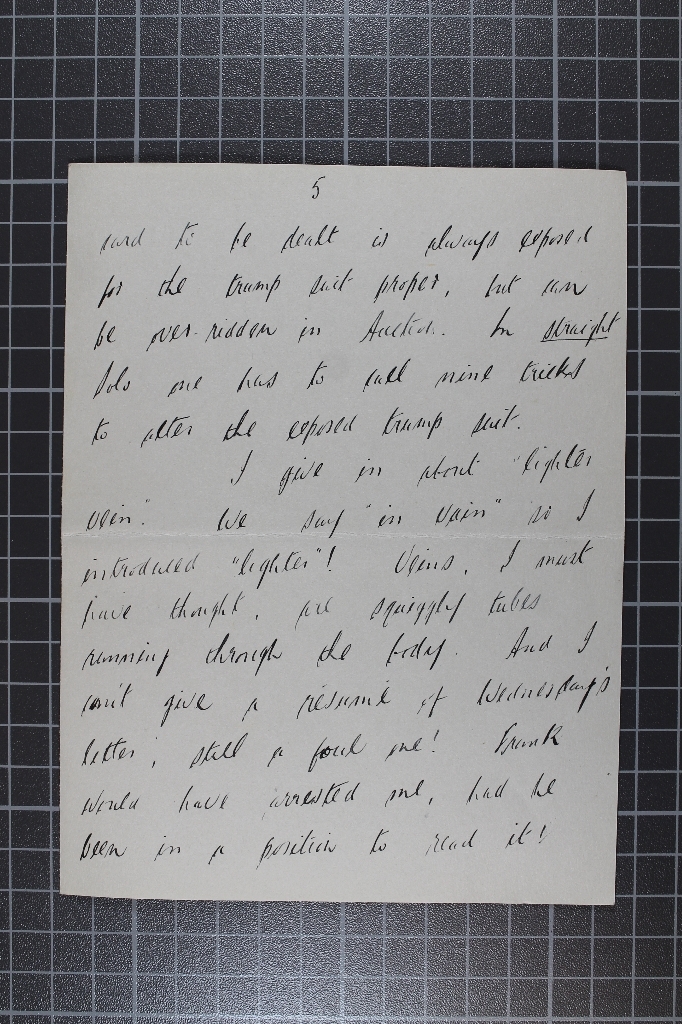 5
card to be dealt is always exposed
for the trump suit proper, but can
be over-ridden in Auction. In straight
Solo one has to call nine tricks
to alter the exposed trump suit.
I give in about "lighter
vein". We say "in vain" so I
introduced "lighter"! Veins, I must
have thought, are squiggly tubes
running through the body. And I
can't give a résumé of Wednesday's
letter, still a foul one! Frank
would have arrested me, had he
been in a position to read it!